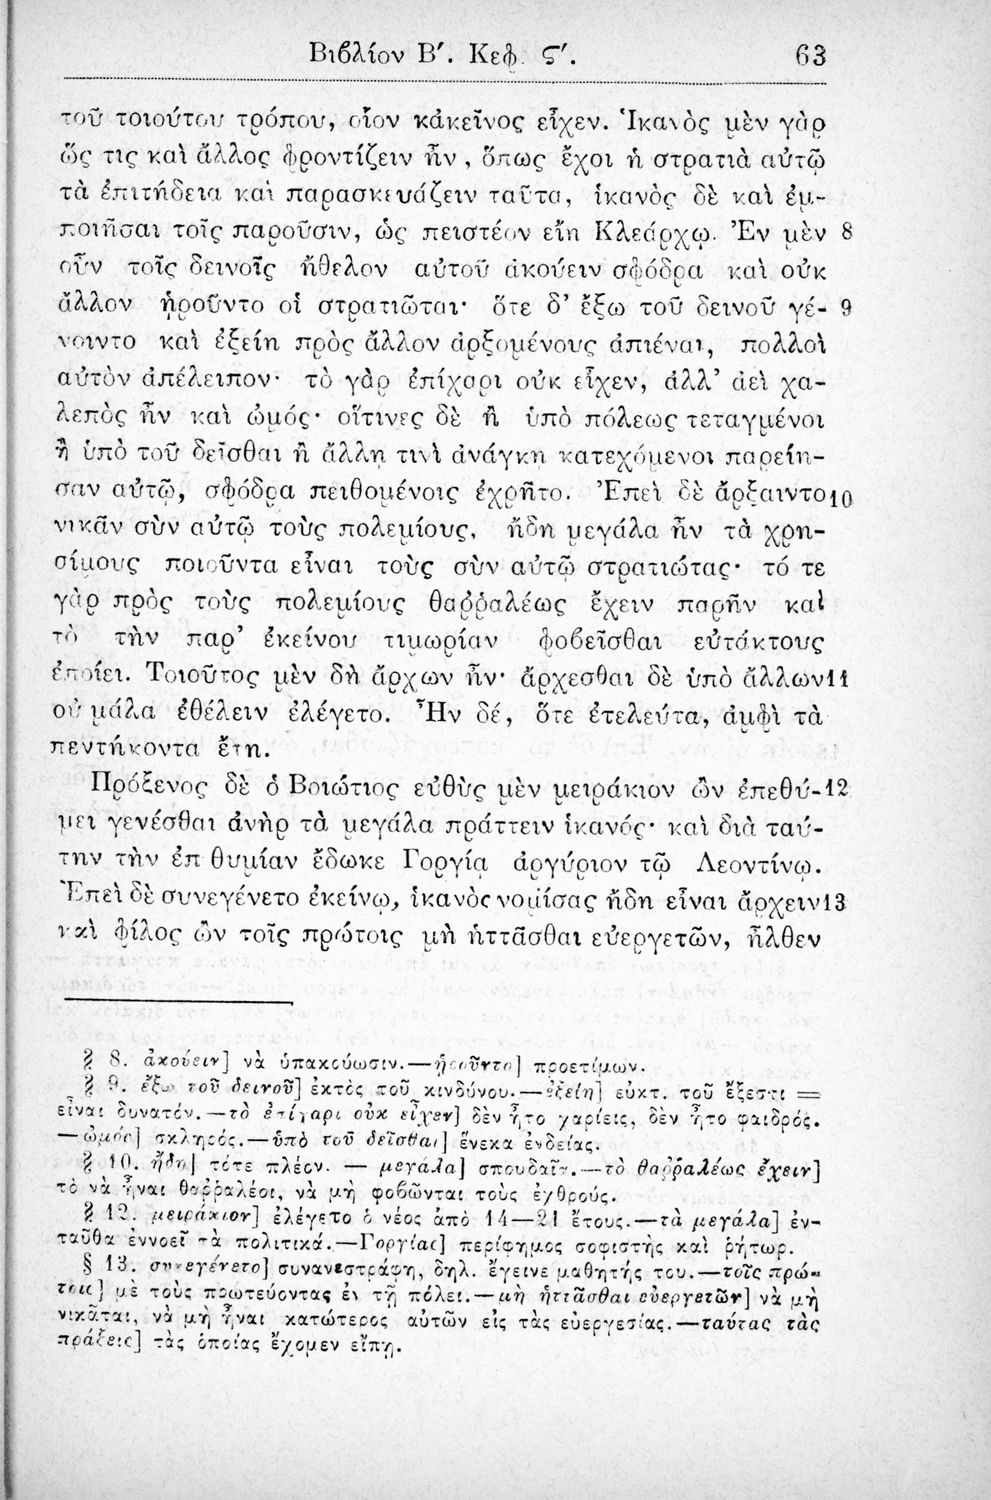 Βιβλίον Β΄. Κεφ. ϛ΄. 63
τοῦ τοιούτου τρόπου, οἷον κἀκεῖνος εἶχεν. Ἱκανὸς μὲν γὰρ
ὥς τις καὶ ἄλλος φροντίζειν ἦν, ὅπως ἔχοι ἡ στρατιὰ αὐτῷ
τὰ ἐπιτήδεια καὶ παρασκευάζειν ταῦτα, ἱκανὸς δὲ καὶ ἐμ-
ποιῆσαι τοῖς παροῦσιν, ὡς πειστέον εἴη Κλεάρχῳ. Ἐν μὲν 8
οὖν τοῖς δεινοῖς ἤθελον αὐτοῦ ἀκούειν σφόδρα καὶ οὐκ
ἄλλον ᾑροῦντο οἱ στρατιῶται· ὅτε δ’ ἔξω τοῦ δεινοῦ γέ- 9
νοιντο καὶ ἐξείη πρὸς ἄλλον ἀρξομένους ἀπιέναι, πολλοὶ
αὐτὸν ἀπέλειπον· τὸ γὰρ ἐπίχαρι οὐκ εἶχεν, ἀλλ’ ἀεὶ χα-
λεπὸς ἦν καὶ ὠμός· οἵτινες δὲ ἢ ὑπὸ πόλεως τεταγμένοι
ἢ ὑπὸ τοῦ δεῖσθαι ἢ ἄλλῃ τινὶ ἀνάγκῃ κατεχόμενοι παρείη-
σαν αὐτῷ, σφόδρα πειθομένοις ἐχρῆτο. Ἐπεὶ δὲ ἄρξαιντο 10
νικᾶν σὺν αὐτῷ τοὺς πολεμίους, ἤδη μεγάλα ἦν τὰ χρη-
σίμους ποιοῦντα εἶναι τοὺς σὺν αὐτῷ στρατιώτας· τό τε
γὰρ πρὸς τοὺς πολεμίους θαῤῥαλέως ἔχειν παρῆν καὶ
τὸ τὴν παρ’ ἐκείνου τιμωρίαν φοβεῖσθαι εὐτάκτους
ἐποίει. Τοιοῦτος μὲν δὴ ἄρχων ἦν· ἄρχεσθαι δὲ ὑπὸ ἄλλων 11
οὐ μάλα ἐθέλειν ἐλέγετο. Ἦν δέ, ὅτε ἐτελεύτα, ἀμφὶ τὰ
πεντήκοντα ἔτη.
Πρόξενος δὲ ὁ Βοιώτιος εὐθὺς μὲν μειράκιον ὢν ἐπεθύ- 12
μει γενέσθαι ἀνὴρ τὰ μεγάλα πράττειν ἱκανός· καὶ διὰ ταύ-
την τὴν ἐπιθυμίαν ἔδωκε Γοργίᾳ ἀργύριον τῷ Λεοντίνῳ.
Ἐπεὶ δὲ συνεγένετο ἐκείνῳ, ἱκανὸς νομίσας ἤδη εἶναι ἄρχειν 13
καὶ φίλος ὢν τοῖς πρώτοις μὴ ἡττᾶσθαι εὐεργετῶν, ἦλθεν
§ 8. ἀκούειν] νὰ ὑπακούωσιν.—ᾑροῦντο] προετίμων.
§ 9. ἔξω τοῦ δεινοῦ] ἐκτὸς τοῦ κινδύνου.—ἐξείη] εὐκτ. τοῦ ἔξεστι =
εἶναι δυνατόν.—τὸ ἐπίχαρι οὐκ εἶχεν] δὲν ἦτο χαρίεις, δὲν ἦτο φαιδρός.
—ὠμός] σκληρός.—ὑπὸ τοῦ δεῖσθαι] ἕνεκα ἐνδείας.
§ 10. ἤδη] τότε πλέον. — μεγάλα] σπουδαῖα.—τὸ θαῤῥαλέως ἔχειν]
τὸ νὰ ἦναι θαῤῥαλέοι, νὰ μὴ φοβῶνται τοὺς ἐχθρούς.
§ 12. μειράκιον] ἐλέγετο ὁ νέος ἀπὸ 14—21 ἔτους.—τὰ μεγάλα] ἐν-
ταῦθα ἐννοεῖ τὰ πολιτικά.—Γοργίας] περίφημος σοφιστὴς καὶ ῥήτωρ.
§ 13. συνεγένετο] συνανεστράφη, δηλ. ἔγεινε μαθητής του.—τοῖς πρώ-
τοις] μὲ τοὺς πρωτεύοντας ἐν τῇ πόλει.—μὴ ἡττᾶσθαι εὐεργετῶν] νὰ μὴ
νικᾶται, νὰ μὴ ἦναι κατώτερος αὐτῶν εἰς τὰς εὐεργεσίας.—ταύτας τὰς
πράξεις] τὰς ὁποίας ἔχομεν εἴπῃ.